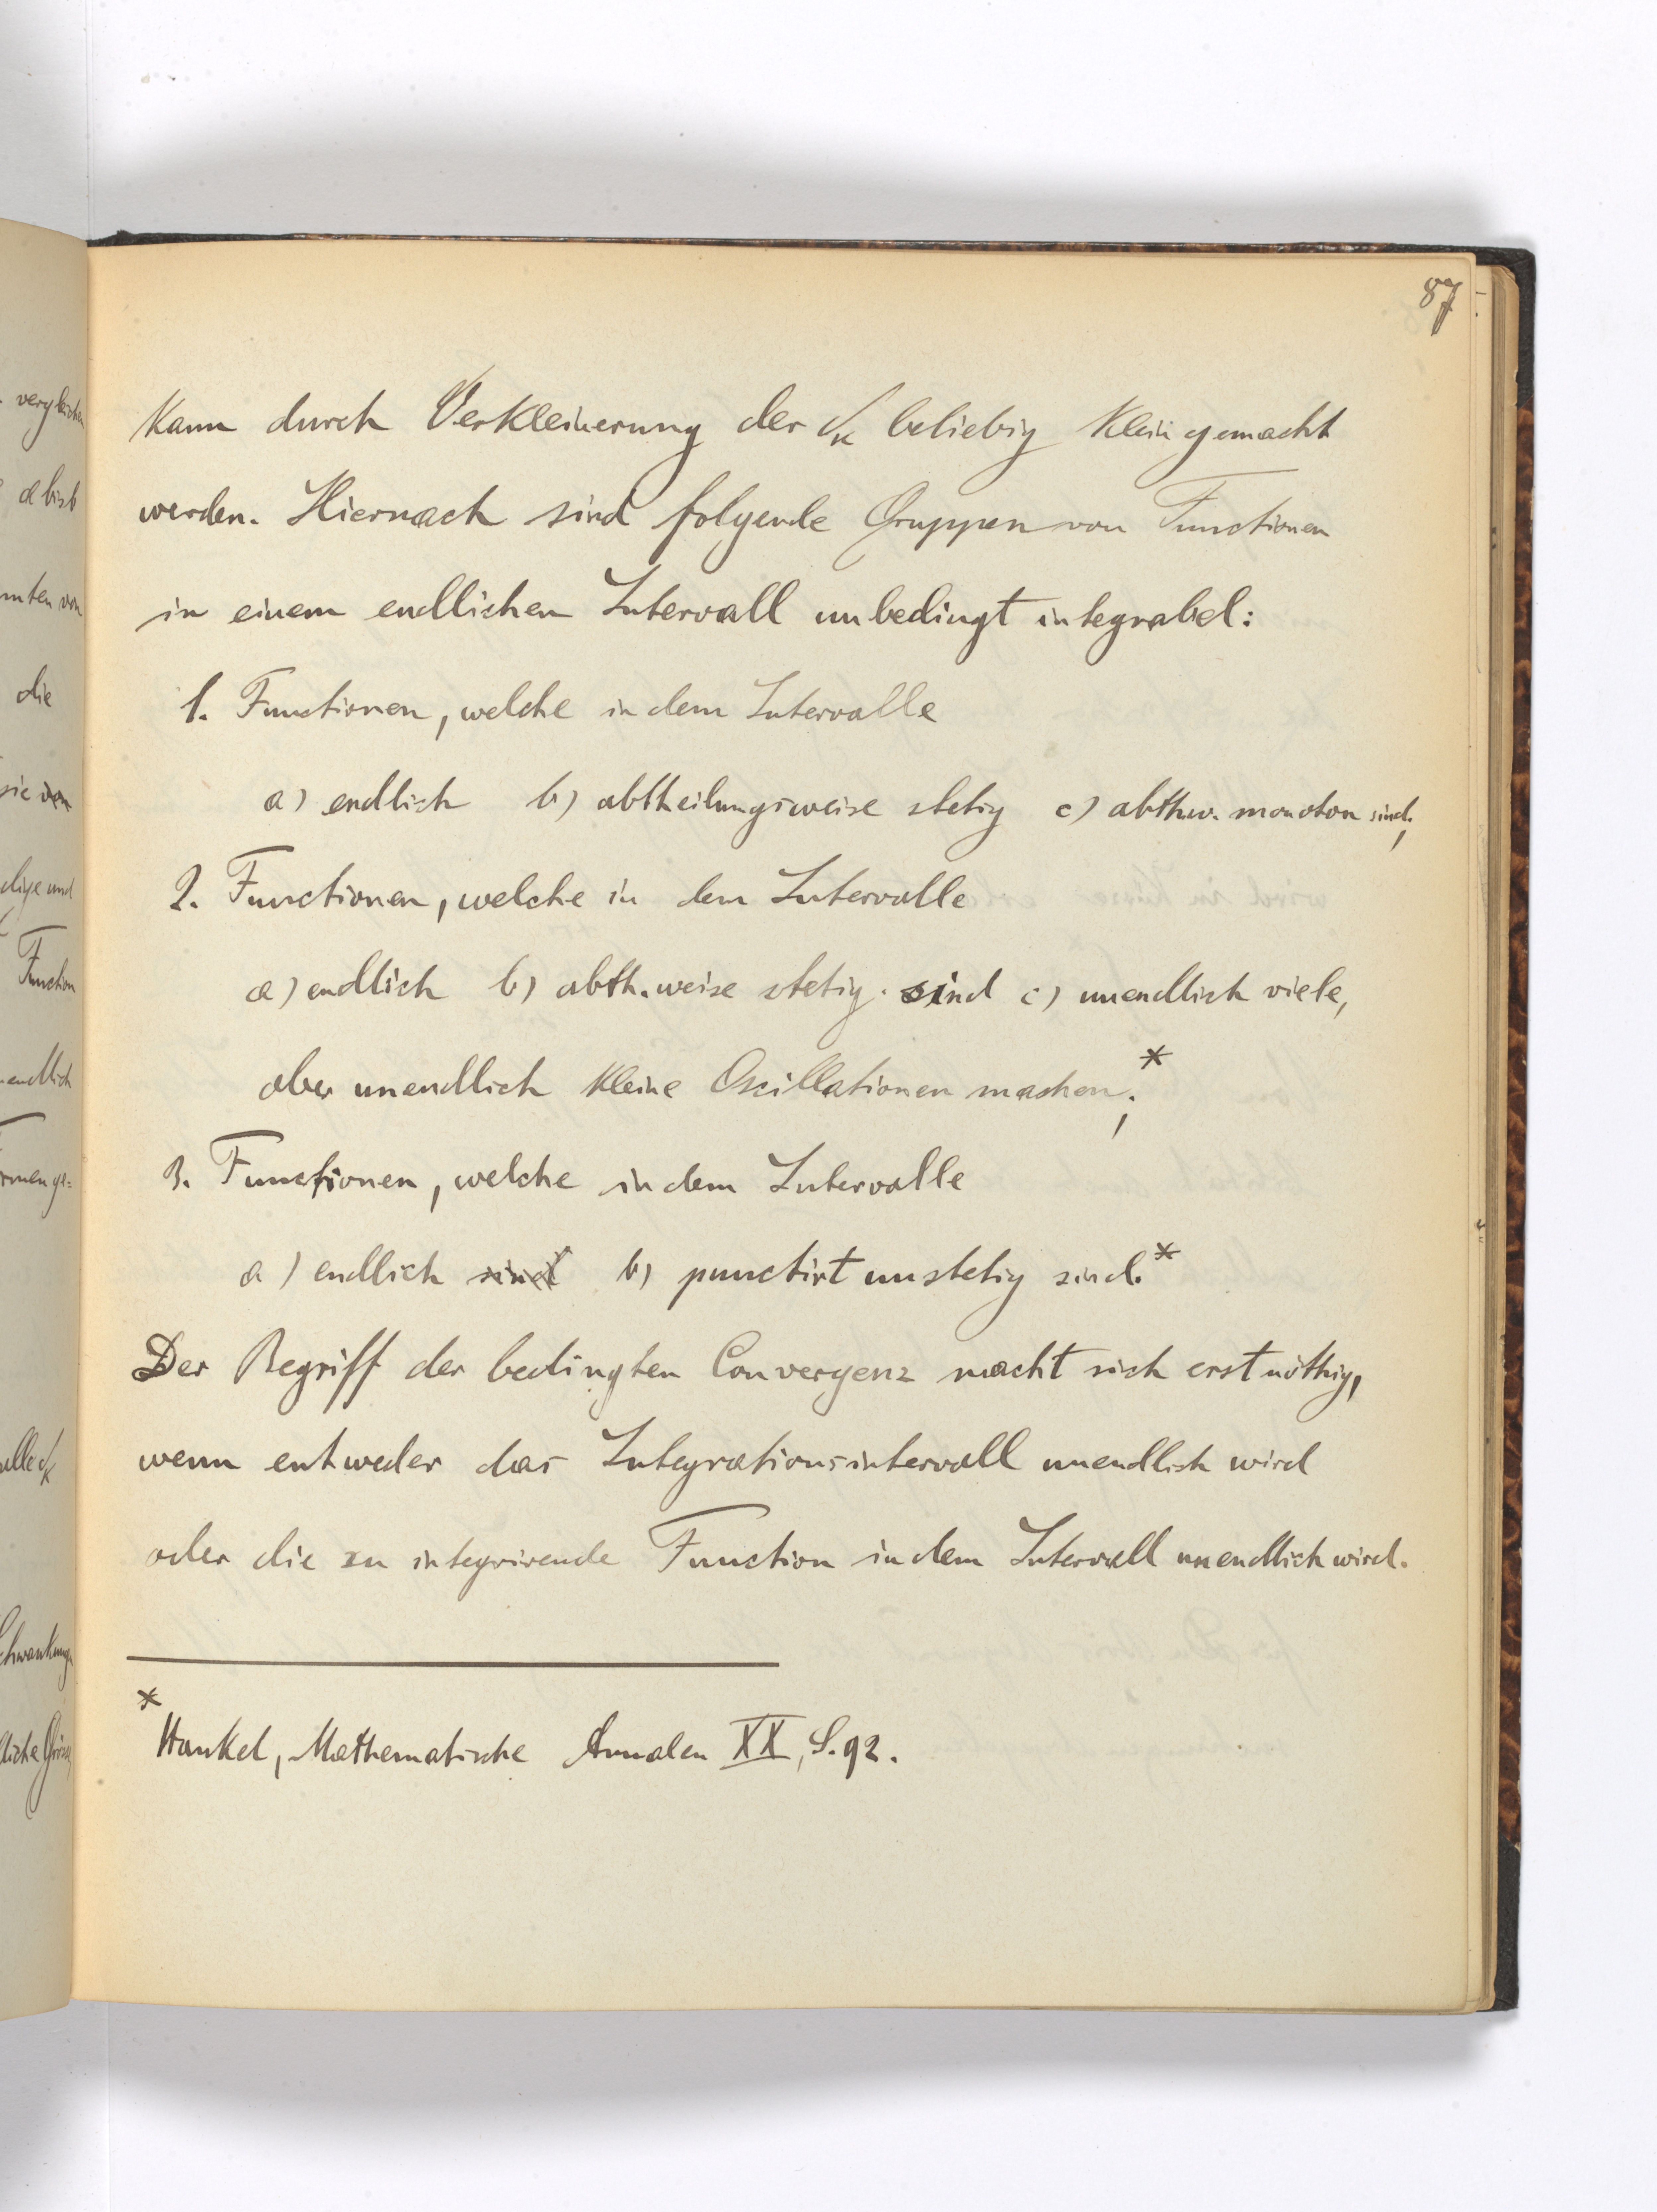 87
kann durch Verkleinerung der δₖ beliebig klein gemacht
werden. Hiernach sind folgende Gruppen von Functionen
in einem endlichen Intervall unbedingt integrabel:
1. Functionen, welche in dem Intervalle
a) endlich b) abtheilungsweise stetig c) abthw. monoton sind;
2. Functionen, welche in dem Intervalle
a) endlich b) abth.weise stetig sind c) unendlich viele,
aber unendlich kleine Oscillationen machen;*
3. Functionen, welche in dem Intervalle
a) endlich sind b) punctirt unstetig sind.*
Der Begriff der bedingten Convergenz macht sich erst nöthig,
wenn entweder das Integrationsintervall unendlich wird
oder die zu integrirende Function in dem Intervall unendlich wird.
* Hankel, Mathematische Annalen XX, S. 92.
vergleichen
a bis b
von
die
sie von
und
Function
endlich
alle δₖ
Schwankungen